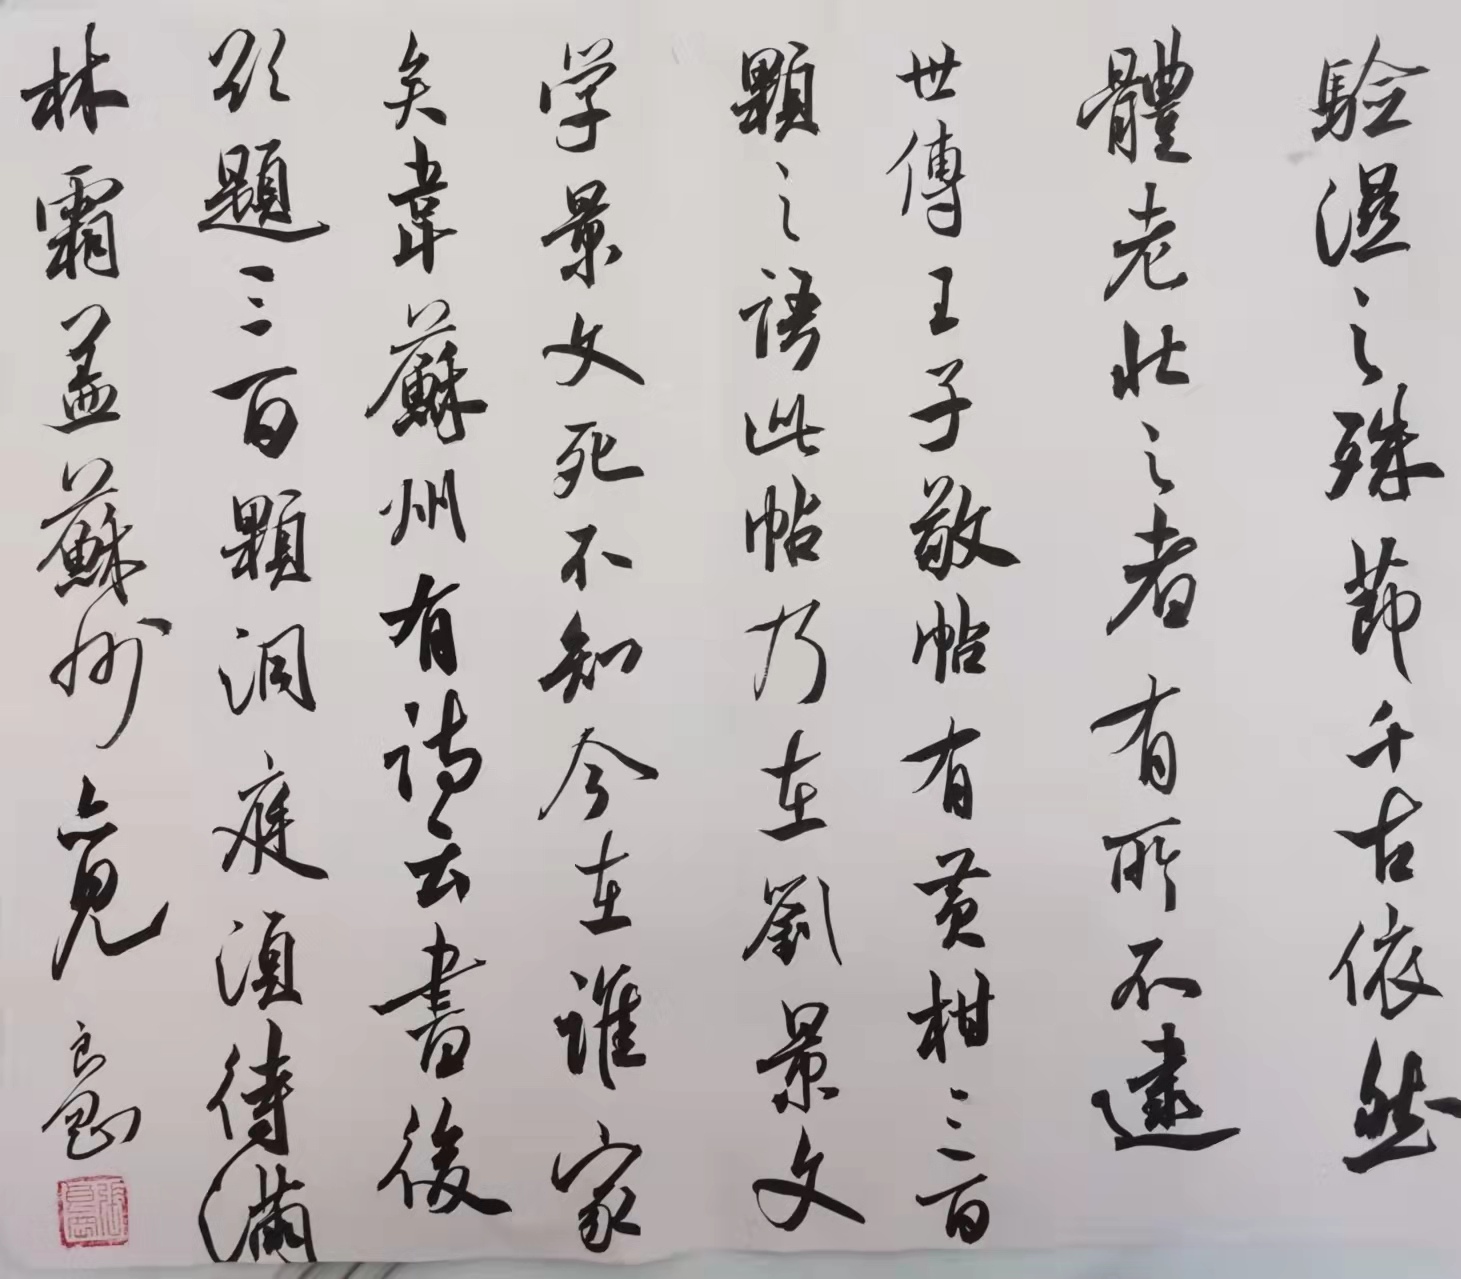 驗湿之殊節千古依然
體老壮之者有所不逮
世傳王子敬帖有黄柑三百
顆之語此帖乃在劉景文
学景文死不知今在谁家
矣韋蘇州有詩云書後
欲題三百顆洞庭湏待满
林霜盖蘇州亦見
良